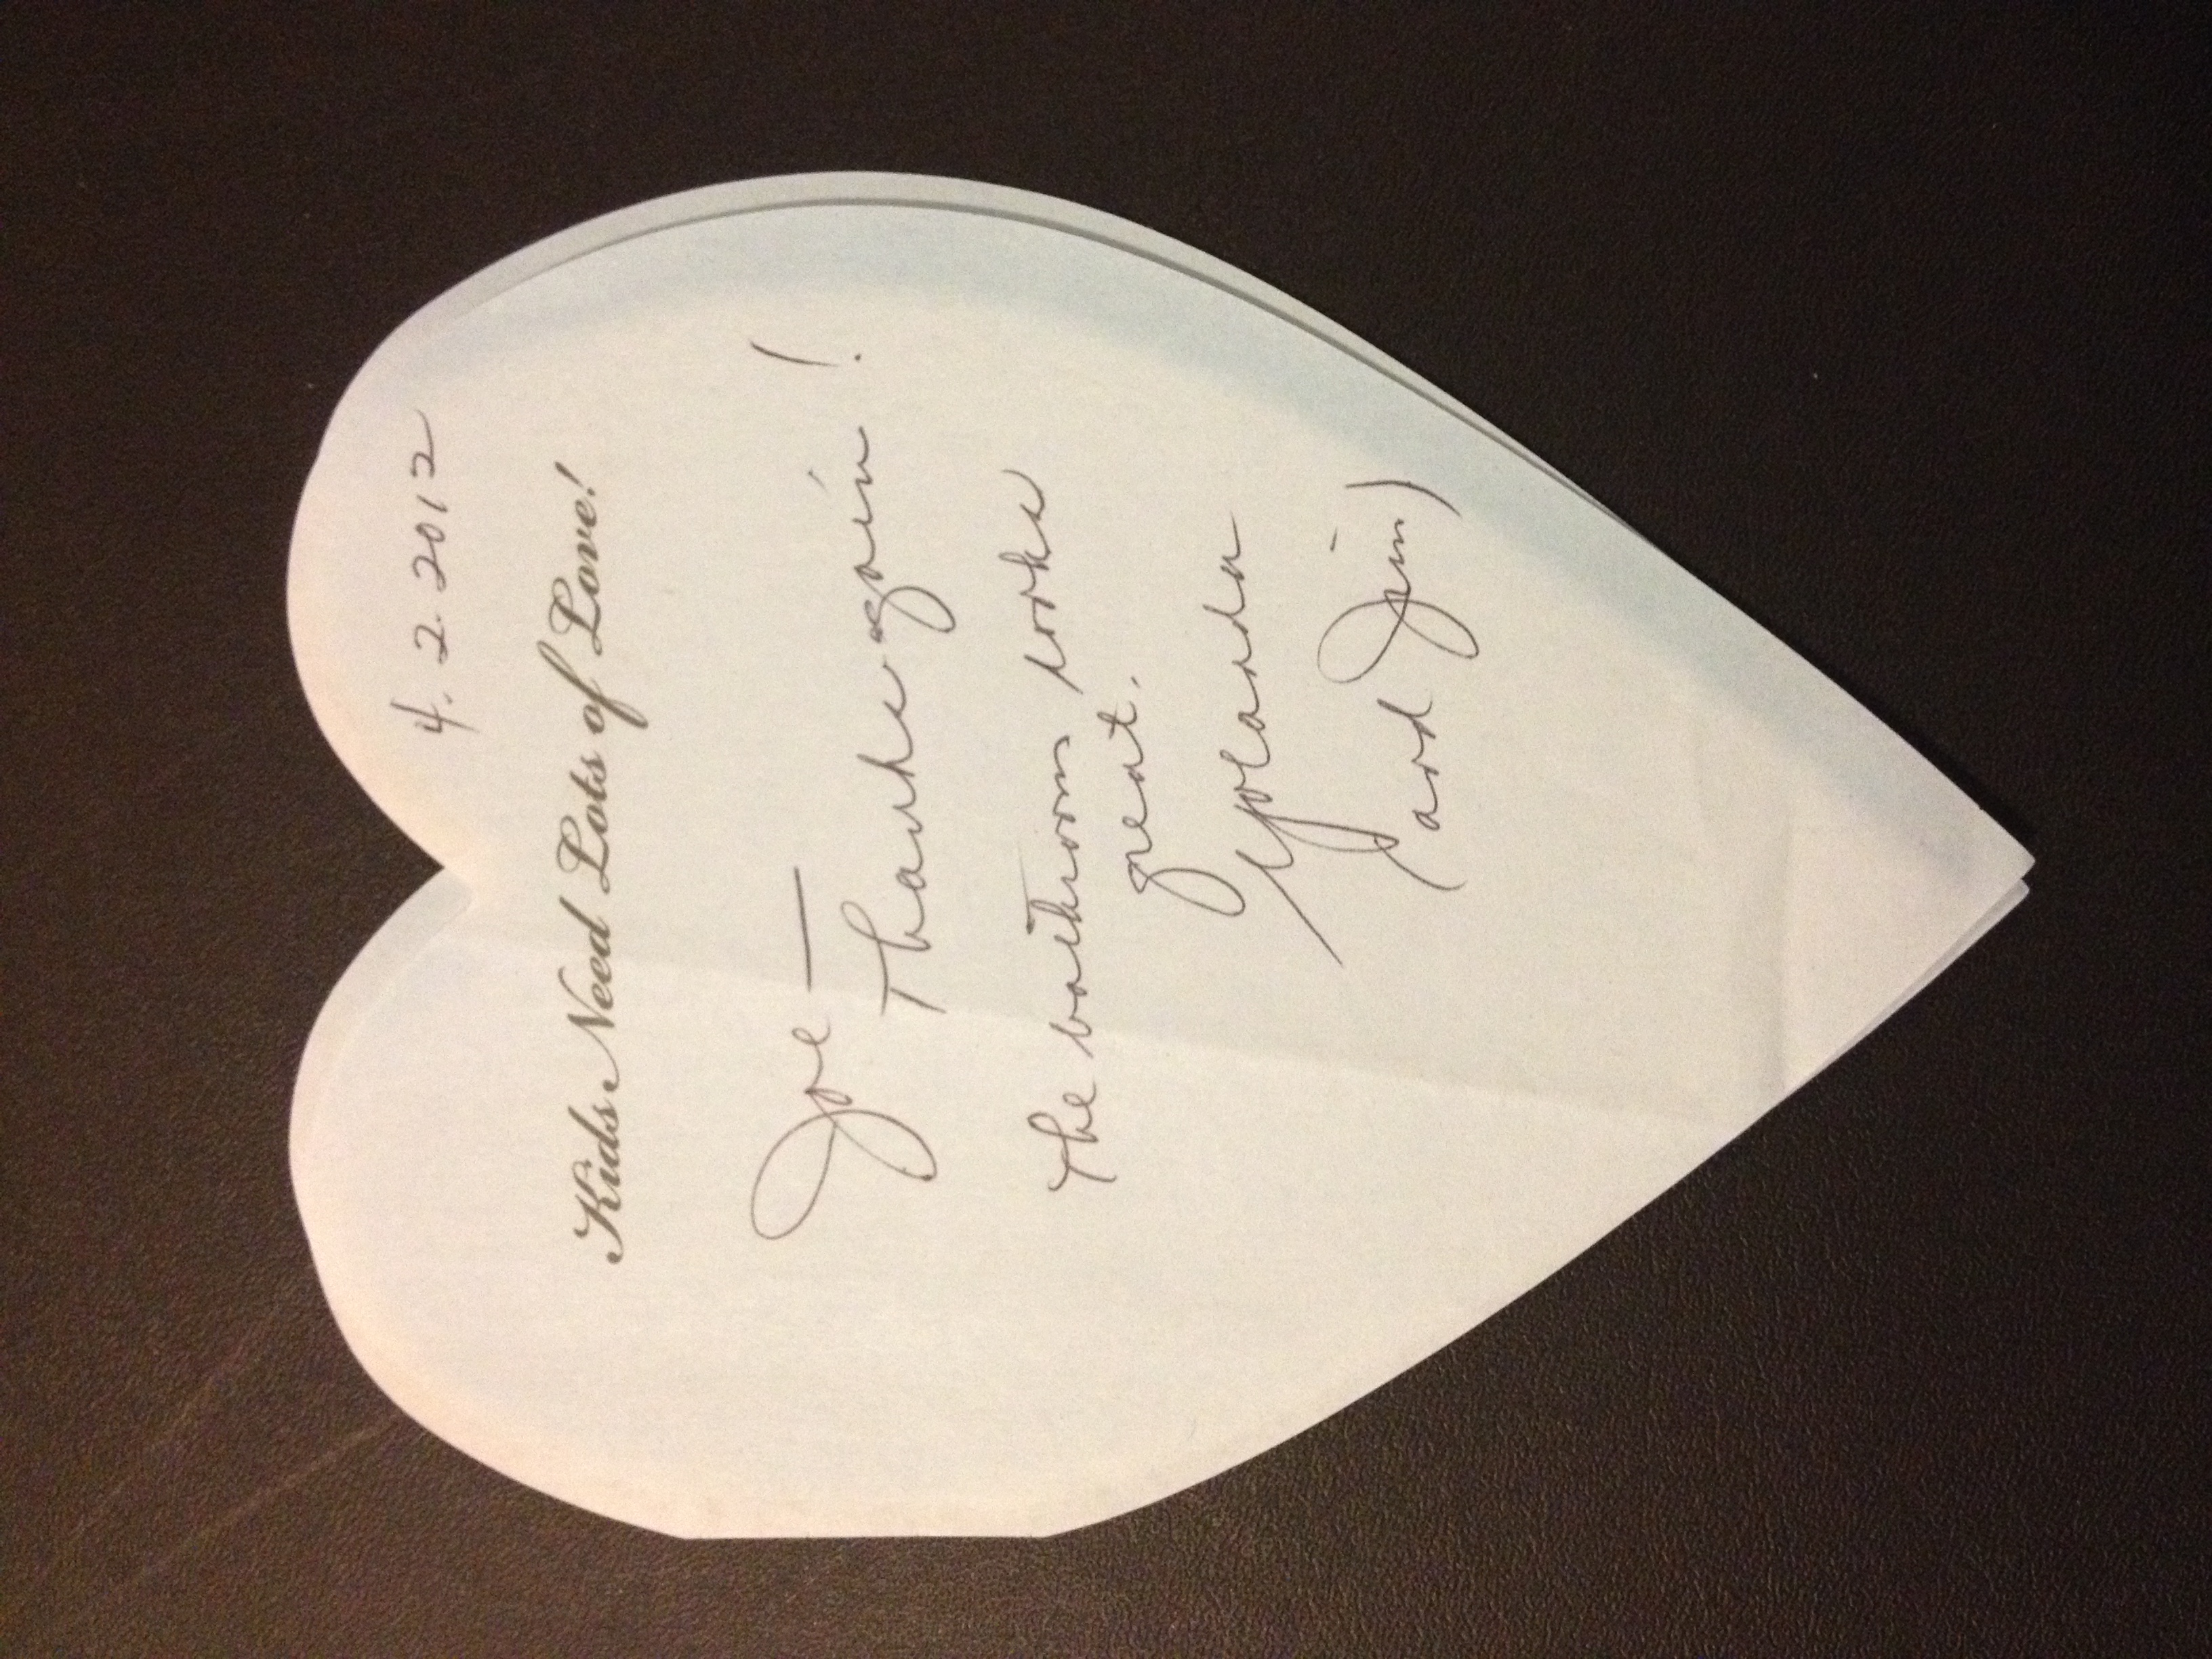 4. 2. 2012
Kids Need Lots of Love!
Joe —
Thanks again!
The bathroom looks
great.
Yolanda
(and Jim)